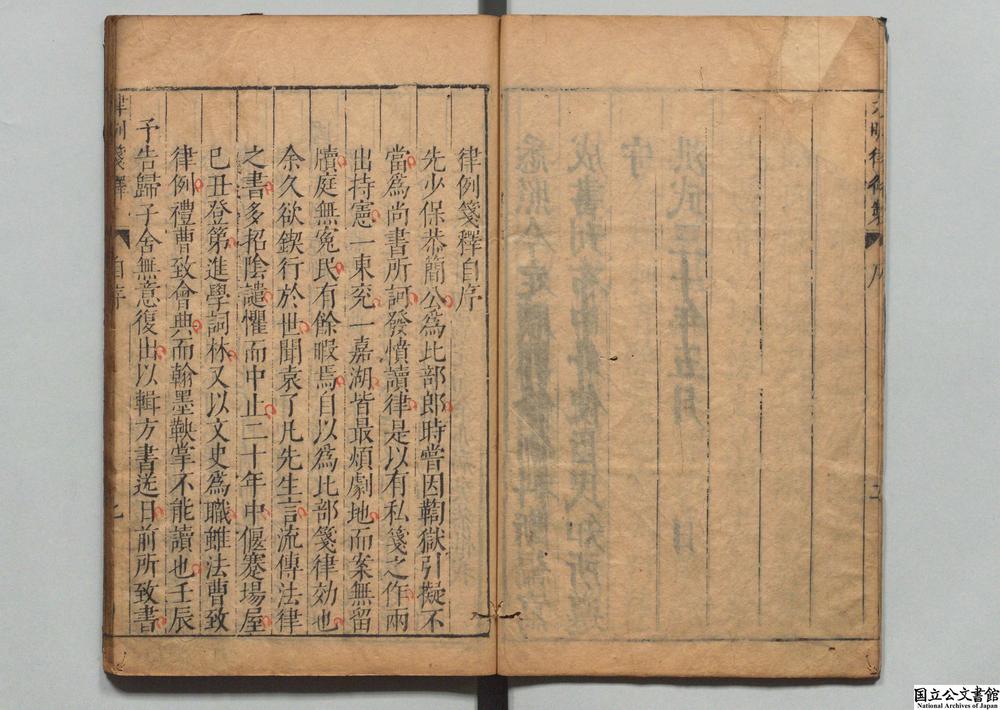 律例箋釋自序
先少保恭簡公為比部郎時嘗因鞫獄引擬不
當為尚書所訶發憤讀律是以有私箋之作兩
出持憲一東兖一嘉湖皆最煩劇地而案無留
牘庭無寃民有餘暇焉自以為比部箋律効也
余久欲鍥行於世聞袁了凡先生言流傳法律
之書多招陰譴懼而中止二十年中偃蹇場屋
己丑登第進學詞林又以文史為職雖法曹致
律例禮曹致會典而翰墨鞅掌不能讀也壬辰
予告歸子舍無意復出以輯方書迻日前所致書
律例箋釋
自序
洪武三十年五月 日
序
国立公文書館
National Archives of Japan